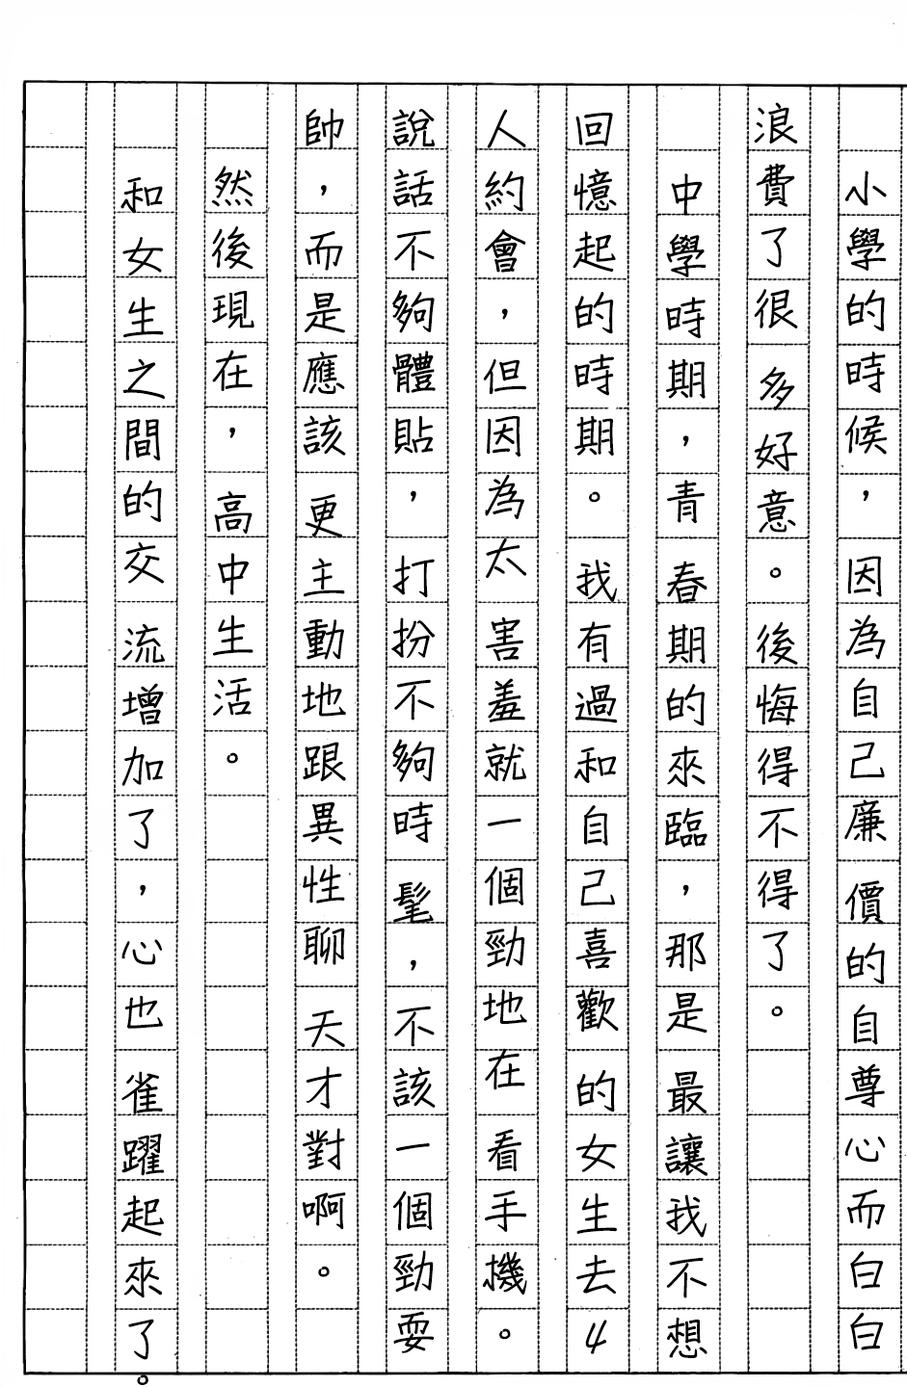 小學的時候，因為自己廉價的自尊心而白白
浪費了很多好意。後悔得不得了。
中學時期，青春期的來臨，那是最讓我不想
回憶起的時期。我有過和自己喜歡的女生去4
人約會，但因為太害羞就一個勁地在看手機。
說話不夠體貼，打扮不夠時髦，不該一個勁耍
帥，而是應該更主動地跟異性聊天才對啊。
然後現在，高中生活。
和女生之間的交流增加了，心也雀躍起來了。